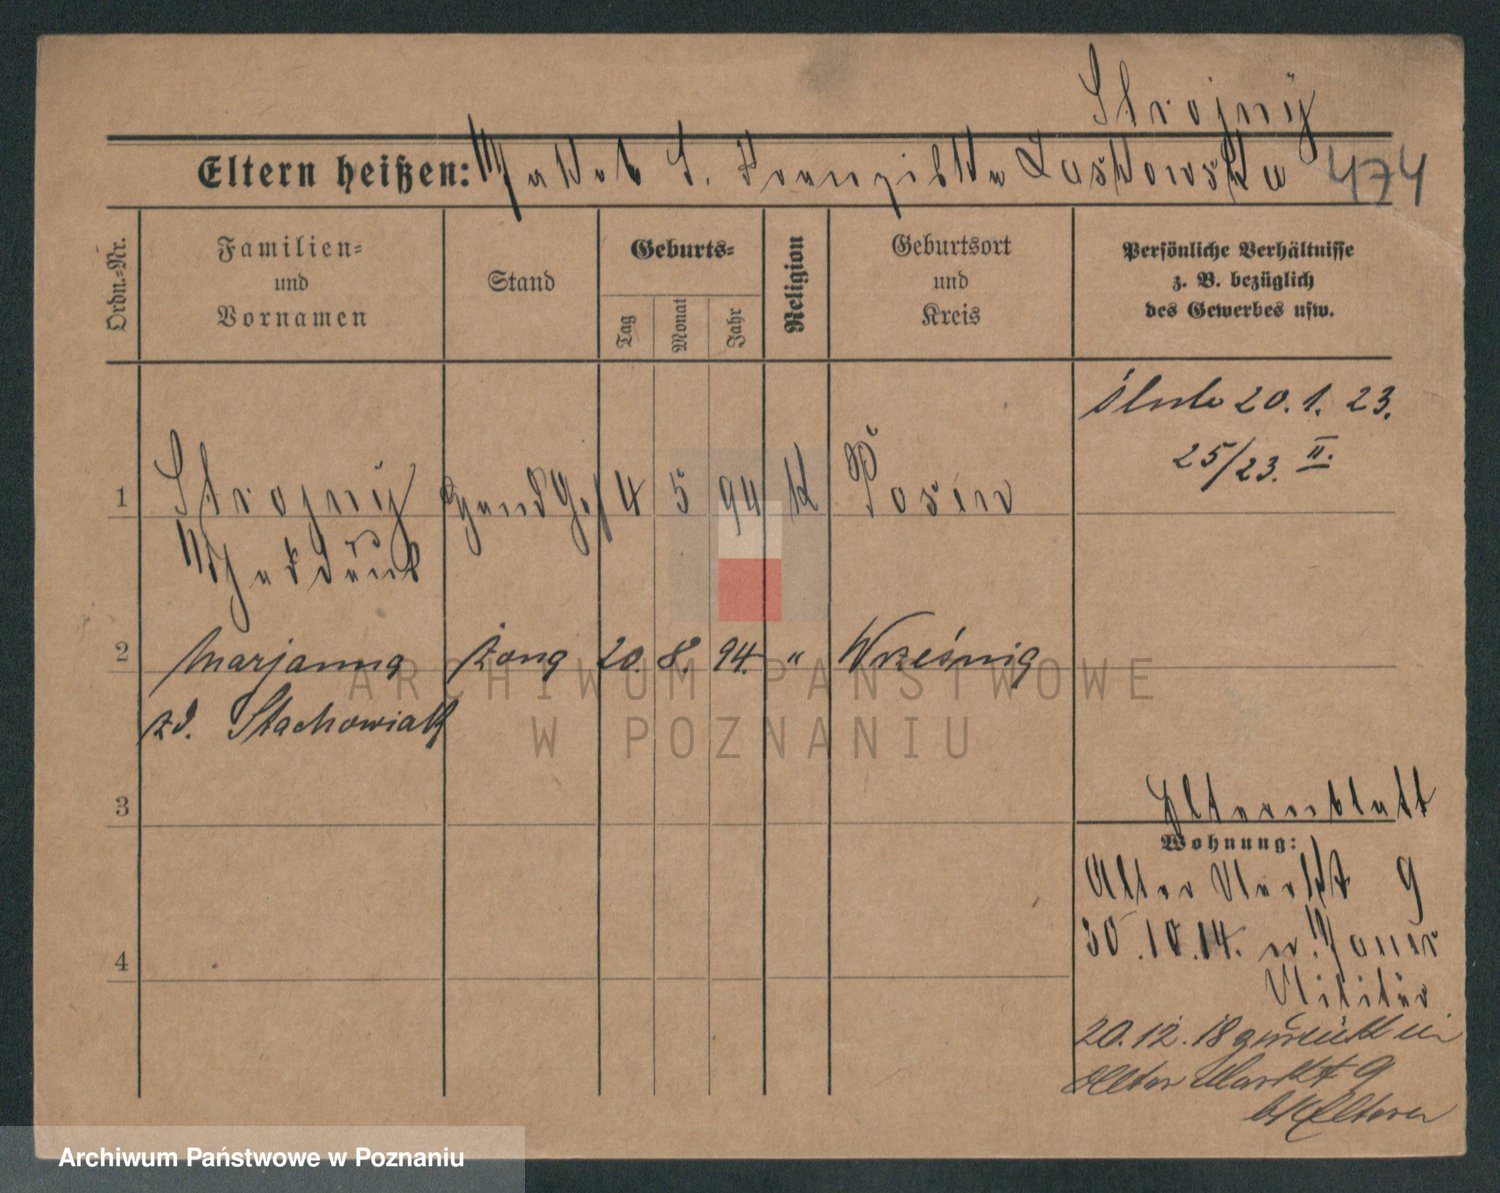 Strojny
Eltern heißen: Jakob S. Franziska Laskowska 474
Ordn.-Nr.
Familien-
und
Vornamen
Stand
Geburts-
Tag
Monat
Jahr
Religion
Geburtsort
und
Kreis
Persönliche Verhältnisse
z. B. bezüglich
des Gewerbes usw.
20. 1. 23.
25/23. II.
1 Strojny 4 5 94 K Posen
2 Marjanna żona 20. 8. 94. " Września
zd. Stachowiak
3
Elternblatt
Wohnung:
Alter Markt 9
30.10.14. n. Jauer
Militär
4
20.12.18 zurück in
Alter Markt 9
b/ Eltern
ARCHIWUM PAŃSTWOWE
W POZNANIU
Archiwum Państwowe w Poznaniu